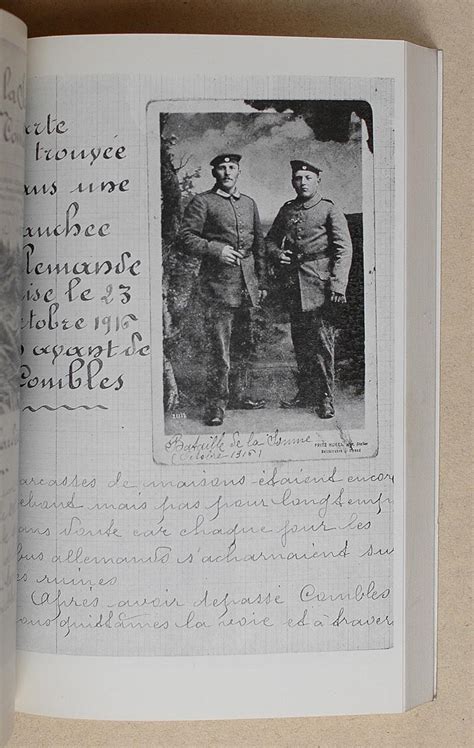 arte
trouvée
ans une
anchee
lemande
ise le 23
ctobre 1916
ayant de
Combles
Bataille de la Somme
(Octobre 1916)
arcasses de maisons étaient encore
ebout mais pas pour longtemps
ans doute car chaque jour les
bus allemands s'acharnaient su
es ruines
Après avoir depassé Combles
ous quittâmes la voie et à traver